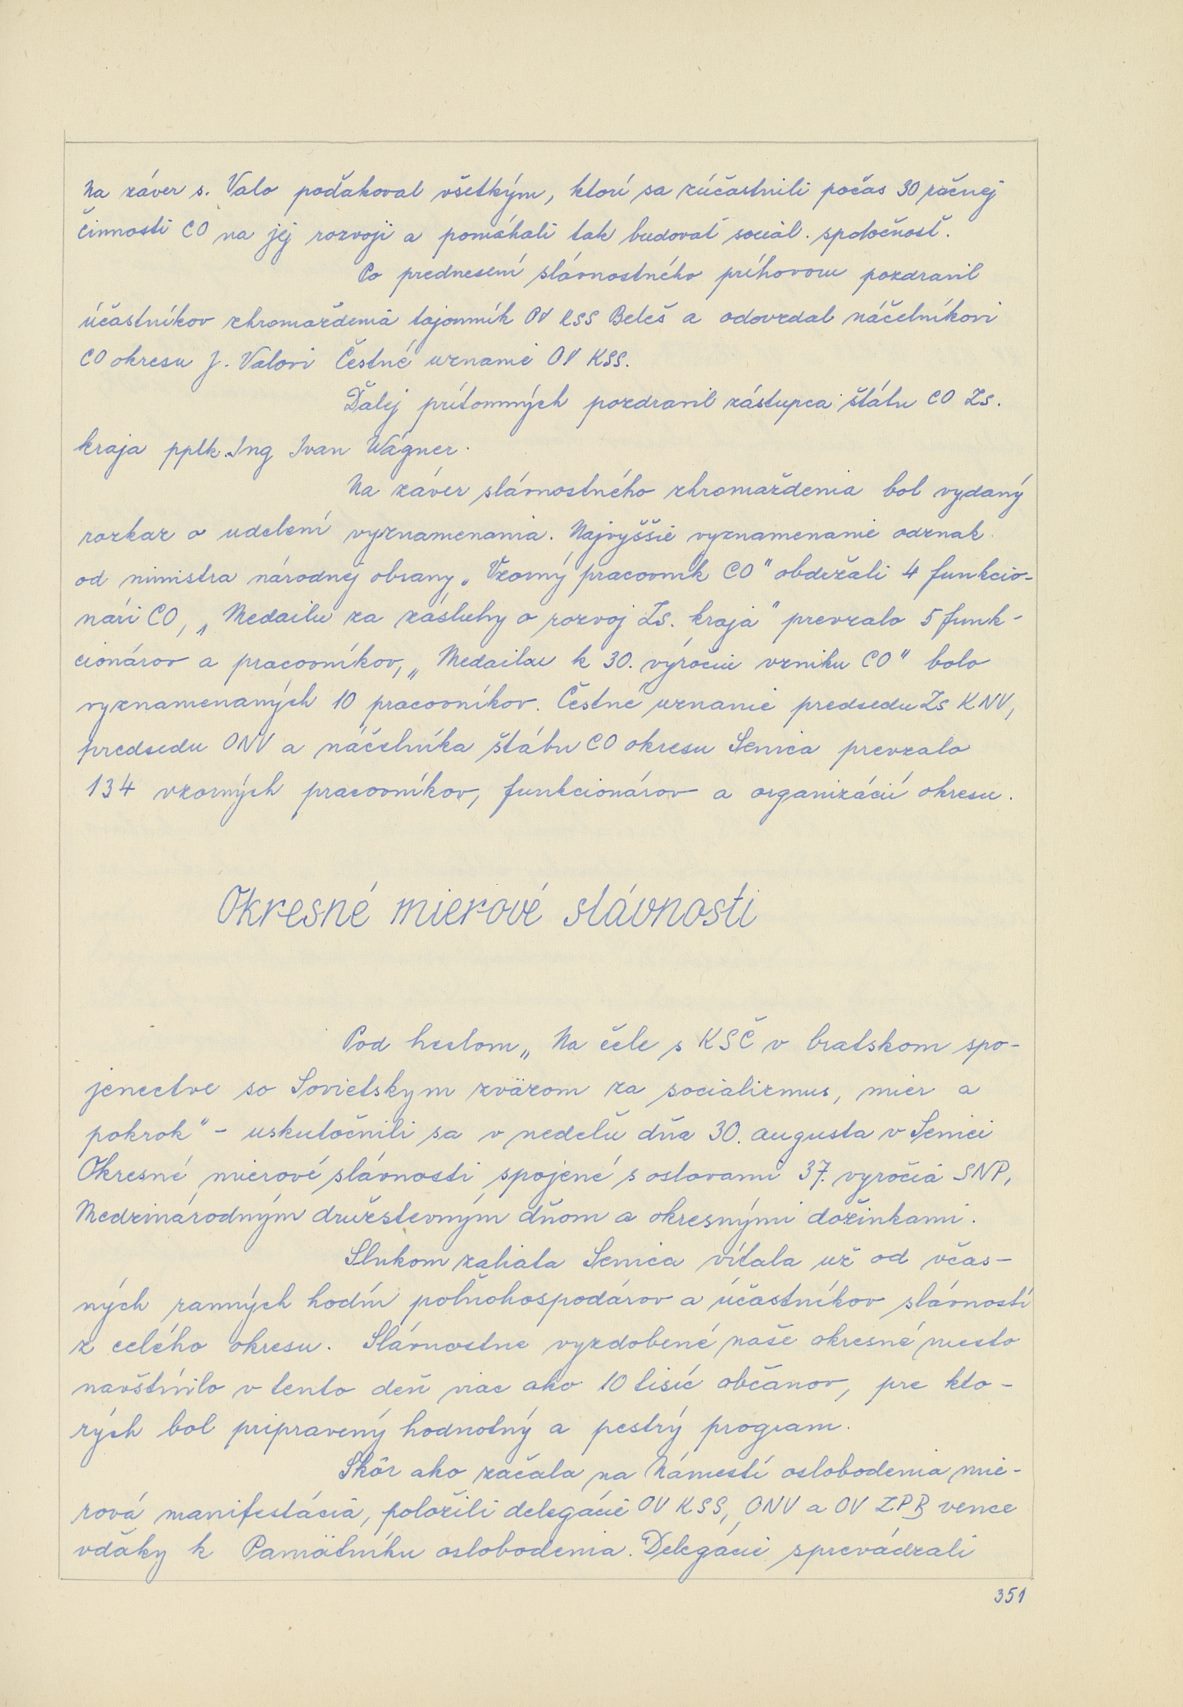 Na záver s. Valo poďakoval všetkým, ktorí sa zúčastnili počas 30 ročnej
činnosti CO na jej rozvoji a pomáhali tak budovať sociál. spoločnosť.
Po prednesení slávnostného príhovoru pozdravil
účastníkov zhromaždenia tajomník OV KSS Beleš a odovzdal náčelníkovi
CO okresu J. Valovi Čestné uznanie OV KSS.
Ďalej prítomných pozdravil zástupca štátu CO Zs.
kraja pplk. Ing Ivan Wágner.
Na záver slávnostného zhromaždenia bol vydaný
rozkaz o udelení vyznamenania. Najvyššie vyznamenanie odznak
od ministra národnej obrany „Vzorný pracovník CO" obdržali 4 funkcio-
nári CO, „Medailu za zásluhy o rozvoj Zs. kraja" prevzalo 5 funk-
cionárov a pracovníkov, „Medailou k 30. výročiu vzniku CO" bolo
vyznamenaných 10 pracovníkov. Čestné uznanie predsedu Zs KNV,
predsedu ONV a náčelníka štábu CO okresu Senica prevzalo
134 vzorných pracovníkov, funkcionárov a organizácií okresu.
Okresné mierové slávnosti
Pod heslom „Na čele s KSČ v bratskom spo-
jenectve so Sovietskym zväzom za socializmus, mier a
pokrok" - uskutočnili sa v nedeľu dňa 30. augusta v Senici
Okresné mierové slávnosti spojené s oslavami 37. výročia SNP,
Medzinárodným družstevným dňom a okresnými dožinkami.
Slnkom zaliata Senica vítala už od včas-
ných ranných hodín poľnohospodárov a účastníkov slávností
z celého okresu. Slávnostne vyzdobené naše okresné mesto
navštívilo v tento deň viac ako 10 tisíc občanov, pre kto-
rých bol pripravený hodnotný a pestrý program.
Skôr ako začala na Námestí oslobodenia mie-
rová manifestácia, položili delegácie OV KSS, ONV a OV ZPB vence
vďaky k Pamätníku oslobodenia. Delegácie sprevádzali
351